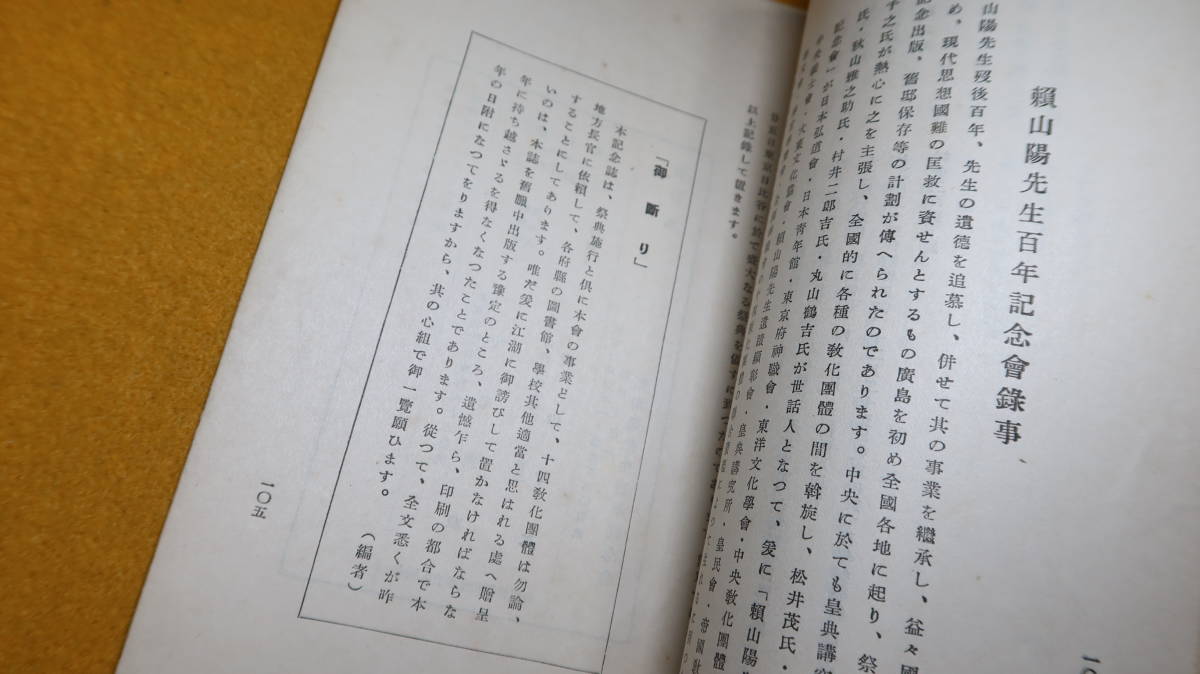 賴山陽先生百年記念會錄事
山陽先生歿後百年、先生の遺德を追慕し、併せて其の事業を繼承し、益々國
め、現代思想國難の匡救に資せんとするもの廣島を初め全國各地に起り、祭
記念出版、舊邸保存等の計劃が傳へられたのであります。中央に於ても皇典講究
千之氏が熱心に之を主張し、全國的に各種の敎化團體の間を斡旋し、松井茂氏・
氏・秋山雅之助氏・村井二郎吉氏・丸山鶴吉氏が世話人となつて、爰に「賴山陽
記念會」が日本弘道會・日本靑年館・東京府神職會・東洋文化學會・中央敎化團體
大東文化協會・賴山陽先生遺蹟顯彰會・皇典講究所・皇民會・帝國敎
日比谷に於て盛大なる祭典を
以上記錄して置きます。
一〇
「御斷り」
本記念誌は、祭典施行と俱に本會の事業として、十四敎化團體は勿論、
地方長官に依賴して、各府縣の圖書館、學校其他適當と思はれる處へ贈呈
することにしてあります。唯だ爰に江湖に御詫びして置かなければならな
いのは、本誌を舊臘中出版する豫定のところ、遺憾乍ら、印刷の都合で本
年に持ち越さゞるを得なくなつたことであります。從つて、全文悉くが昨
年の日附になつてをりますから、其の心組で御一覽願ひます。
（編者）
一〇五